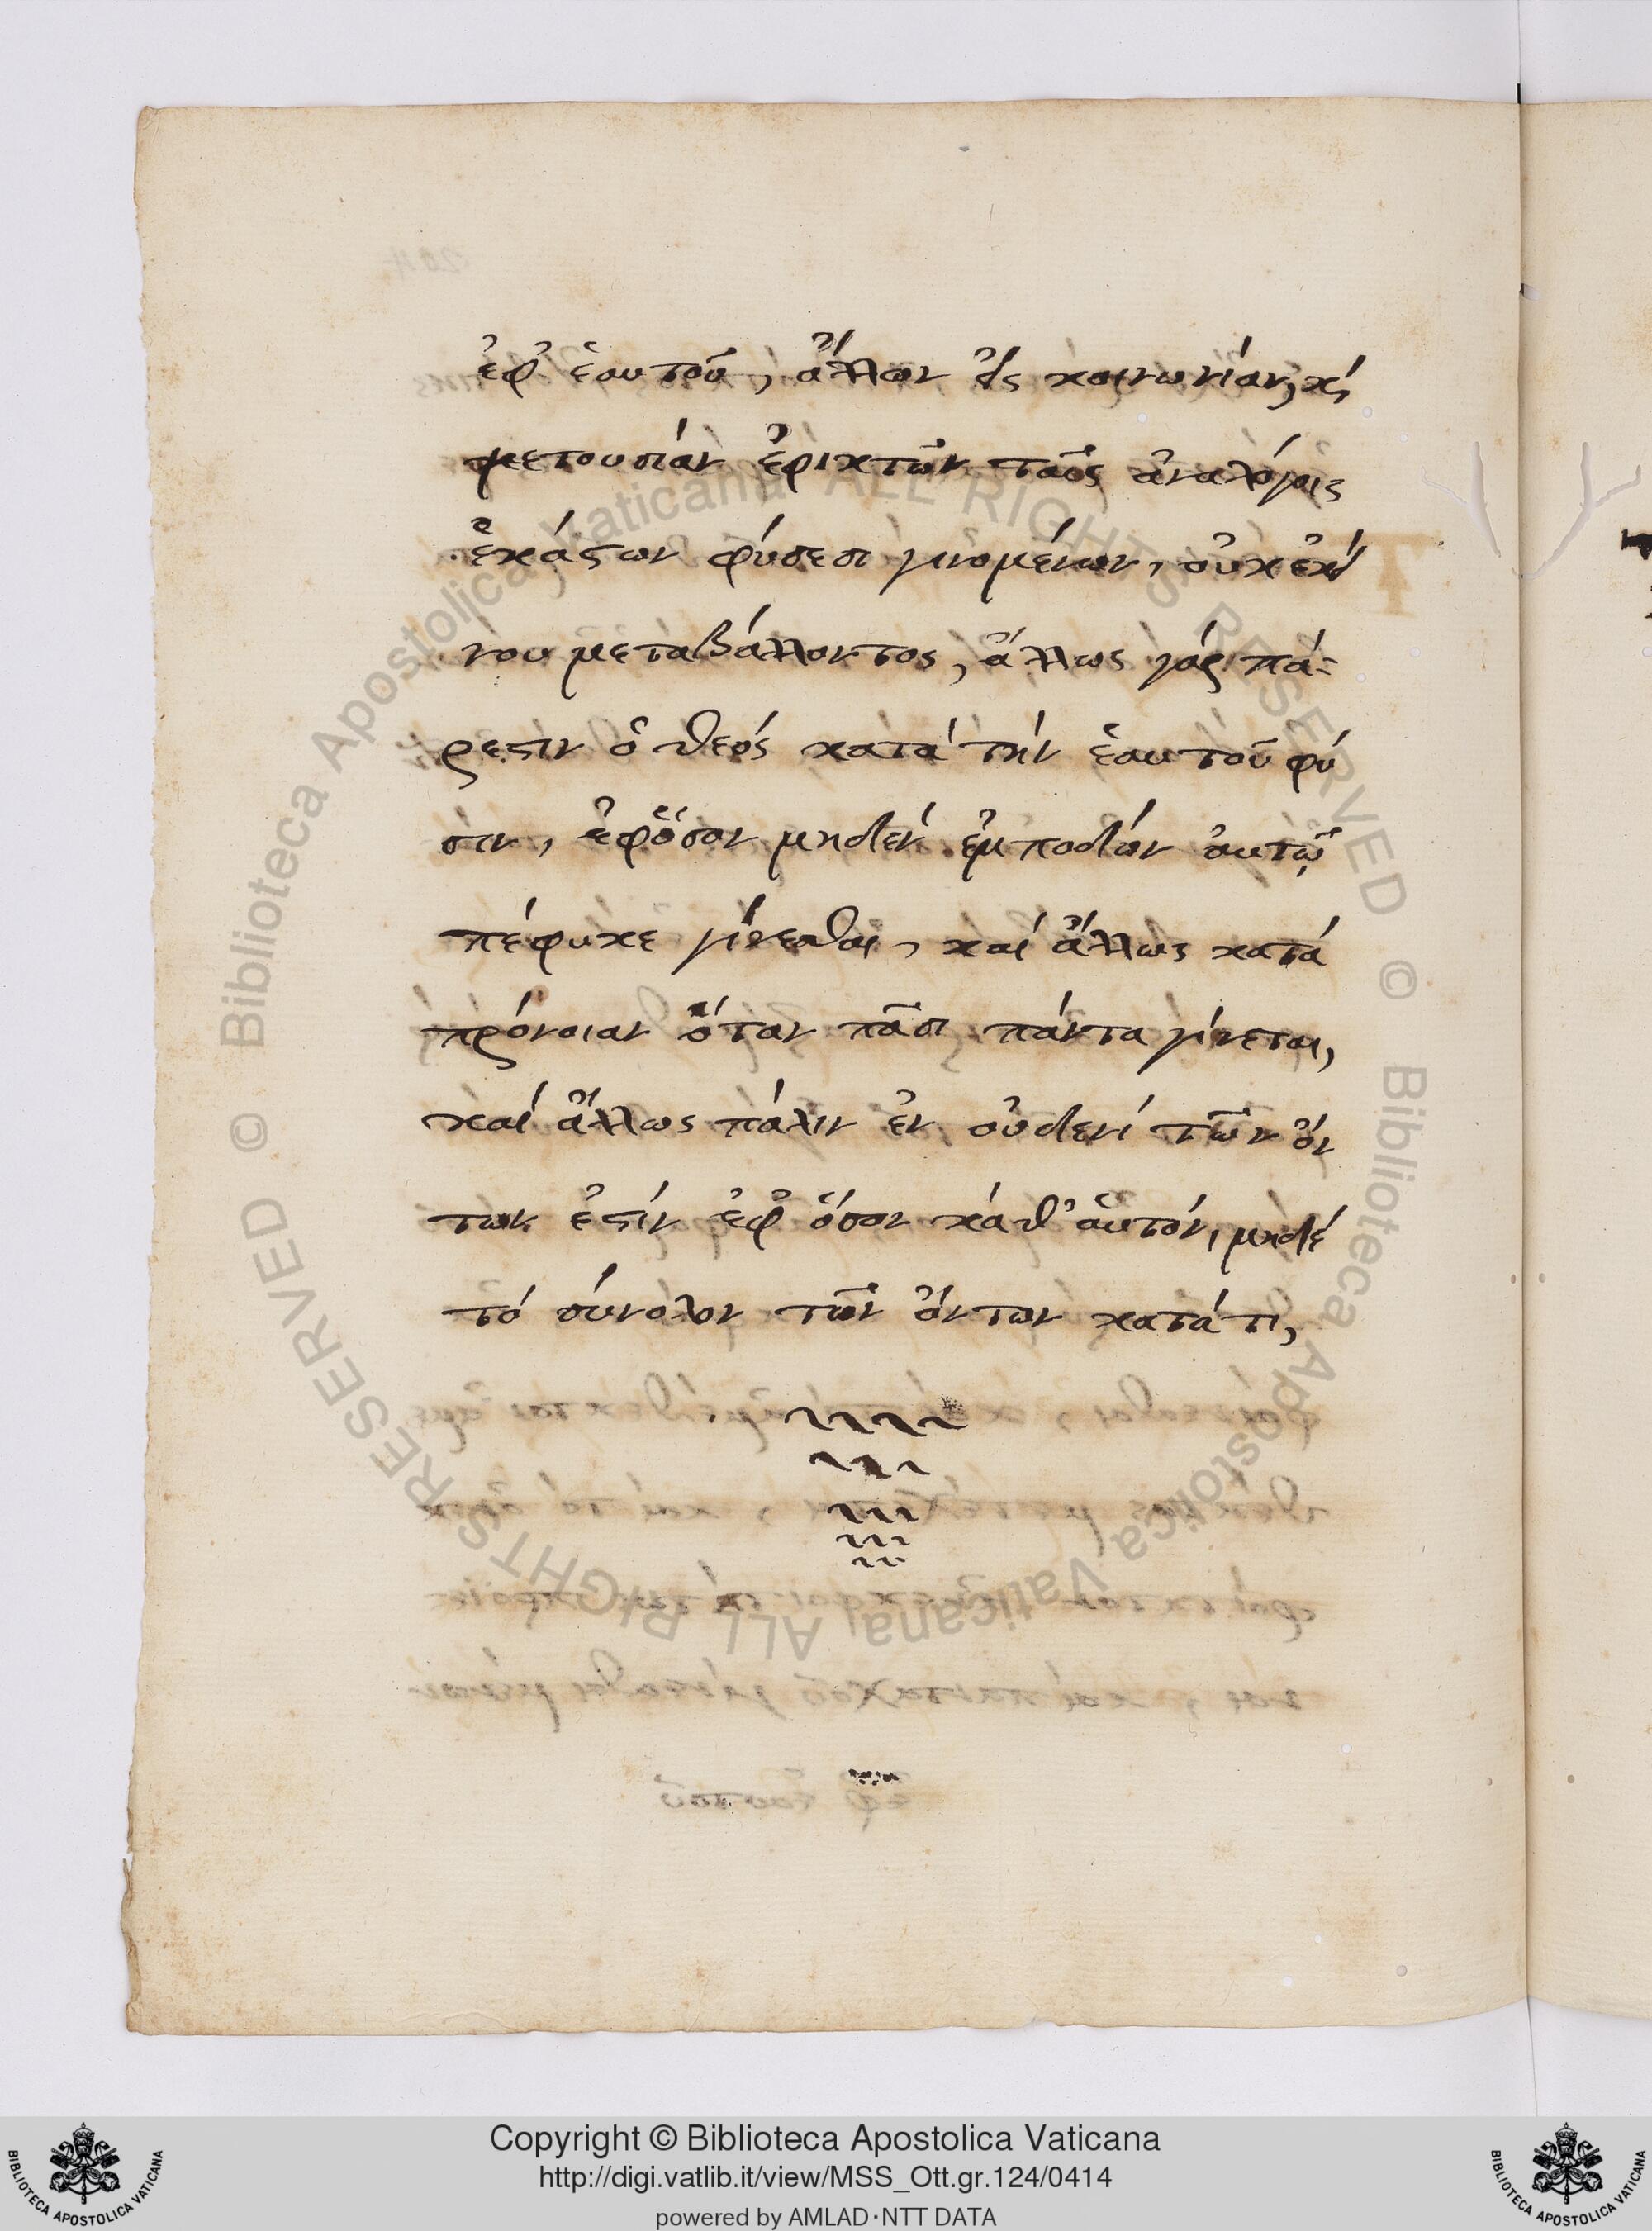 ἐφ' ἑαυτοῦ, ἄλλων εἰς κοινωνίαν, κ(αὶ)
μετουσίαν ἐφικτῶν ταῖς ἀναλόγοις
ἑκάστων φύσεσι γινομένων, οὐκ ἐκεί
νου μεταβάλλοντος, ἄλλως γάρ πά-
ρεστιν ὁ θεός κατά τήν ἑαυτοῦ φύ
σιν, ἐφ' ὅσον μηδέν ἐμποδών αὐτῷ
πέφυκε γίνεσθαι, καί ἄλλως κατά
πρόνοιαν ὅταν πᾶσι πάντα γίνεται,
καί ἄλλως πάλιν ἐν οὐδενί τῶν ὄν
των ἐστίν ἐφ' ὅσον καθ' αὑτόν, μηδέ
τό σύνολον τῶν ὄντων κατά τι,
Biblioteca Apostolica Vaticana ALL RIGHTS RESERVED ©
Biblioteca Apostolica Vaticana ALL RIGHTS RESERVED ©
Copyright © Biblioteca Apostolica Vaticana
http://digi.vatlib.it/view/MSS_Ott.gr.124/0414
powered by AMLAD·NTT DATA
BIBLIOTECA APOSTOLICA VATICANA
BIBLIOTECA APOSTOLICA VATICANA